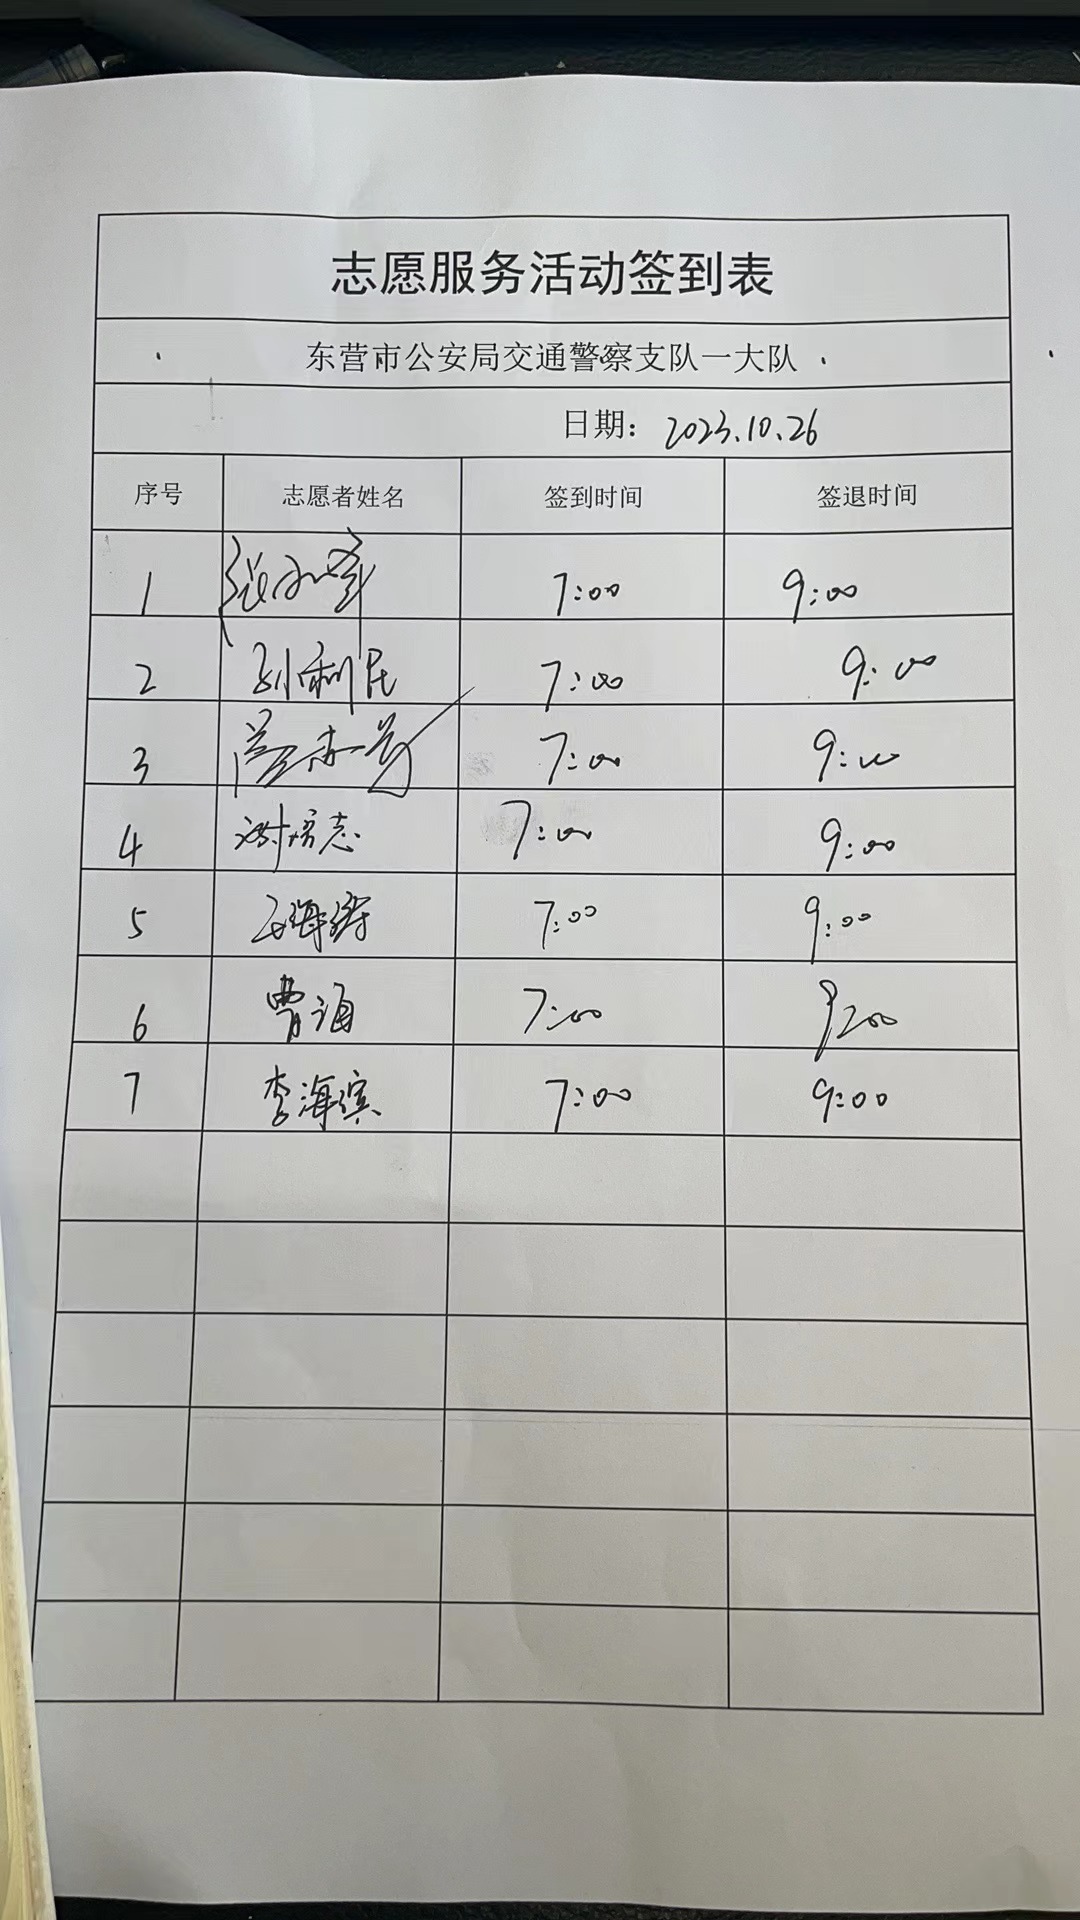 志愿服务活动签到表
东营市公安局交通警察支队一大队
日期：2023.10.26
序号 志愿者姓名 签到时间 签退时间
1 7:00 9:00
2 孙利民 7:00 9:00
3 7:00 9:00
4 谢培志 7:00 9:00
5 7:00 9:00
6 曹海 7:00 9:00
7 李海滨 7:00 9:00